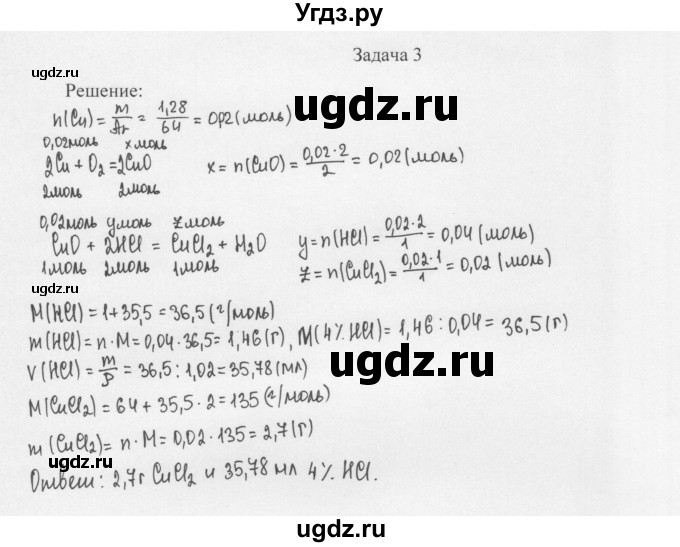 Угдз.ру
Задача 3
Решение:
n(Cu) = m/Ar = 1,28/64 = 0,02 (моль)
0,02моль х моль
2Cu + O₂ = 2CuO x = n(CuO) = 0,02·2/2 = 0,02 (моль)
2моль 2моль
0,02моль y моль z моль
CuO + 2HCl = CuCl₂ + H₂O y = n(HCl) = 0,02·2/1 = 0,04 (моль)
1моль 2моль 1моль z = n(CuCl₂) = 0,02·1/1 = 0,02 (моль)
M(HCl) = 1+35,5 = 36,5 (г/моль)
m(HCl) = n·M = 0,04·36,5 = 1,46 (г), M(4% HCl) = 1,46 : 0,04 = 36,5 (г)
V(HCl) = m/ρ = 36,5 : 1,02 = 35,78 (мл)
M(CuCl₂) = 64 + 35,5·2 = 135 (г/моль)
m(CuCl₂) = n·M = 0,02·135 = 2,7 (г)
Ответ: 2,7г CuCl₂ и 35,78 мл 4% HCl.
ugdz.ru
ugdz.ru
ugdz.ru
ugdz.ru
ugdz.ru
ugdz.ru
ugdz.ru
ugdz.ru
ugdz.ru
ugdz.ru
ugdz.ru
ugdz.ru